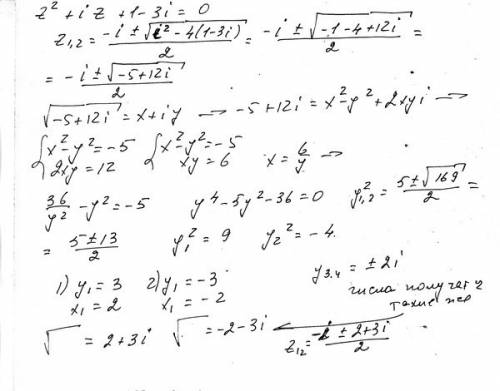 z² + i z + 1 - 3i = 0
z₁,₂ = (-i ± √(i² - 4(1-3i)))/2 = (-i ± √(-1-4+12i))/2 =
= (-i ± √(-5+12i))/2
√(-5+12i) = x+iy → -5+12i = x²-y²+2xyi →
{x²-y²=-5 {x²-y²=-5
2xy=12 xy=6 x=6/y →
36/y² - y² = -5 y⁴-5y²-36=0 y²₁,₂ = (5±√169)/2 =
= (5±13)/2 y₁²=9 y₂²=-4
1) y₁=3 2) y₁=-3 y₃.₄=±2i
x₁=2 x₁=-2 числа получат
такие же
√ = 2+3i √ = -2-3i z₁₂ = (-i ± 2+3i)/2